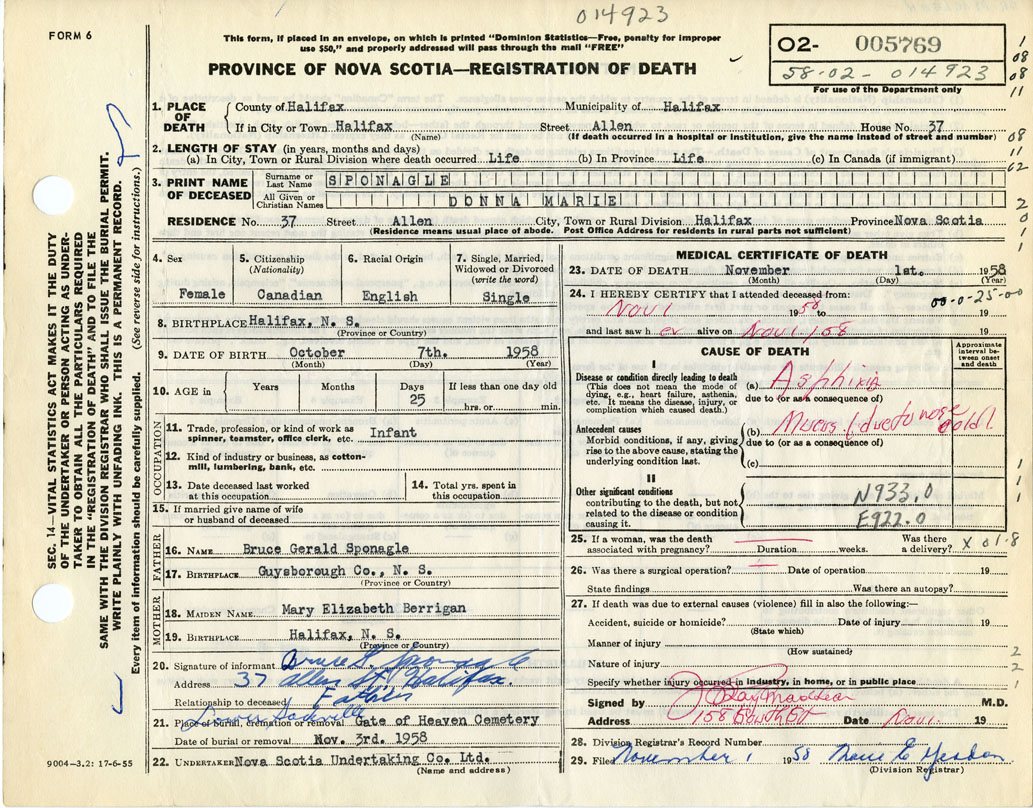 014923
FORM 6
This form, if placed in an envelope, on which is printed "Dominion Statistics—Free, penalty for improper
use $50," and properly addressed will pass through the mail "FREE"
PROVINCE OF NOVA SCOTIA—REGISTRATION OF DEATH
02- 005769
58-02-014923
For use of the Department only
1. PLACE OF DEATH
County of Halifax Municipality of Halifax
If in City or Town Halifax Street Allen House No. 37
(Name) (If death occurred in a hospital or institution, give the name instead of street and number)
2. LENGTH OF STAY (in years, months and days)
(a) In City, Town or Rural Division where death occurred Life (b) In Province Life (c) In Canada (if immigrant)
3. PRINT NAME OF DECEASED
Surname or Last Name SPONAGLE
All Given or Christian Names DONNA MARIE
RESIDENCE No. 37 Street Allen City, Town or Rural Division Halifax Province Nova Scotia
(Residence means usual place of abode. Post Office Address for residents in rural parts not sufficient)
4. Sex
Female
5. Citizenship
(Nationality)
Canadian
6. Racial Origin
English
7. Single, Married,
Widowed or Divorced
(write the word)
Single
8. BIRTHPLACE Halifax, N. S.
(Province or Country)
9. DATE OF BIRTH October 7th. 1958
(Month) (Day) (Year)
10. AGE in
Years Months Days If less than one day old
25 hrs. or min.
OCCUPATION
11. Trade, profession, or kind of work as
spinner, teamster, office clerk, etc. Infant
12. Kind of industry or business, as cotton-
mill, lumbering, bank, etc.
13. Date deceased last worked
at this occupation
14. Total yrs. spent in
this occupation
15. If married give name of wife
or husband of deceased
FATHER
16. NAME Bruce Gerald Sponagle
17. BIRTHPLACE Guysborough Co., N. S.
(Province or Country)
MOTHER
18. MAIDEN NAME Mary Elizabeth Berrigan
19. BIRTHPLACE Halifax, N. S.
(Province or Country)
20. Signature of informant Bruce G. Sponagle
Address 37 Allen St. Halifax.
Relationship to deceased Father
Lower Sackville
21. Place of burial, cremation or removal Gate of Heaven Cemetery
Date of burial or removal Nov. 3rd. 1958
22. UNDERTAKER Nova Scotia Undertaking Co. Ltd.
(Name and address)
MEDICAL CERTIFICATE OF DEATH
23. DATE OF DEATH November 1st. 1958
(Month) (Day) (Year)
24. I HEREBY CERTIFY that I attended deceased from: 00-0-25-00
Nov 1 1958 to 19
and last saw her alive on Nov 1, 58 19
CAUSE OF DEATH
Approximate
interval be-
tween onset
and death
I
Disease or condition directly leading to death
(This does not mean the mode of
dying, e.g., heart failure, asthenia,
etc. It means the disease, injury, or
complication which caused death.)
(a) Asphixia
due to (or as a consequence of)
Antecedent causes
Morbid conditions, if any, giving
rise to the above cause, stating the
underlying condition last.
(b) Mucus (due to nose cold)
due to (or as a consequence of)
(c)
II
Other significant conditions
contributing to the death, but not
related to the disease or condition
causing it.
N933.0
E922.0
25. If a woman, was the death
associated with pregnancy? Duration weeks. Was there
a delivery? X 01-8
26. Was there a surgical operation? Date of operation 19
State findings Was there an autopsy?
27. If death was due to external causes (violence) fill in also the following:—
Accident, suicide or homicide? Date of injury 19
(State which)
Manner of injury
(How sustained)
Nature of injury
Specify whether injury occurred in industry, in home, or in public place
Signed by M.D.
Address 158 South St Date Nov 1. 19
28. Division Registrar's Record Number
29. Filed November 1 1958
(Division Registrar)
SEC. 14—VITAL STATISTICS ACT MAKES IT THE DUTY
OF THE UNDERTAKER OR PERSON ACTING AS UNDER-
TAKER TO OBTAIN ALL THE PARTICULARS REQUIRED
IN THE "REGISTRATION OF DEATH" AND TO FILE THE
SAME WITH THE DIVISION REGISTRAR WHO SHALL ISSUE THE BURIAL PERMIT.
WRITE PLAINLY WITH UNFADING INK. THIS IS A PERMANENT RECORD.
Every item of information should be carefully supplied. (See reverse side for instructions.)
9004-3.2: 17-6-55
1
08
08
11
08
11
02
2
0
1
1
1
1
1
2
2
1